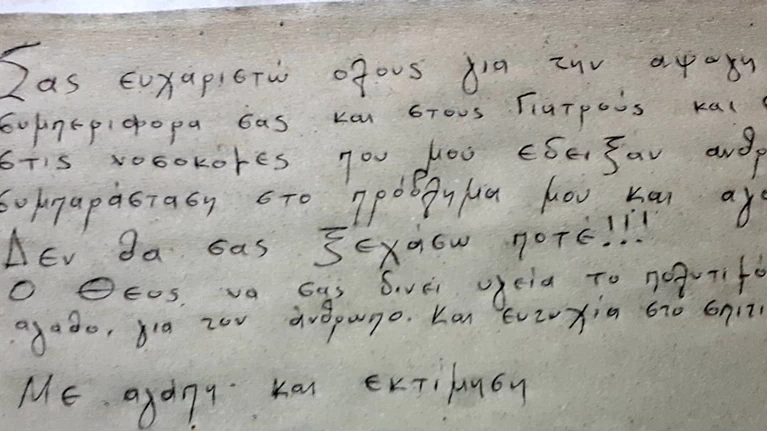 Σας ευχάριστώ ολους για την αψογη
συμπεριφορα σας και στους Γιατρούς και
στις νοσοκόμες που μού εδειξαν ανθρ
συμπαράσταση στο πρόβλημα μου και αγα
Δεν θα σας ξεχάσω ποτέ!!!
Ο Θεος να σας δινει υγεία το πολυτιμό
αγαθο, για τον άνθρωπο. Και ευτυχία στο σπιτι
Με αγάπη και εκτίμηση